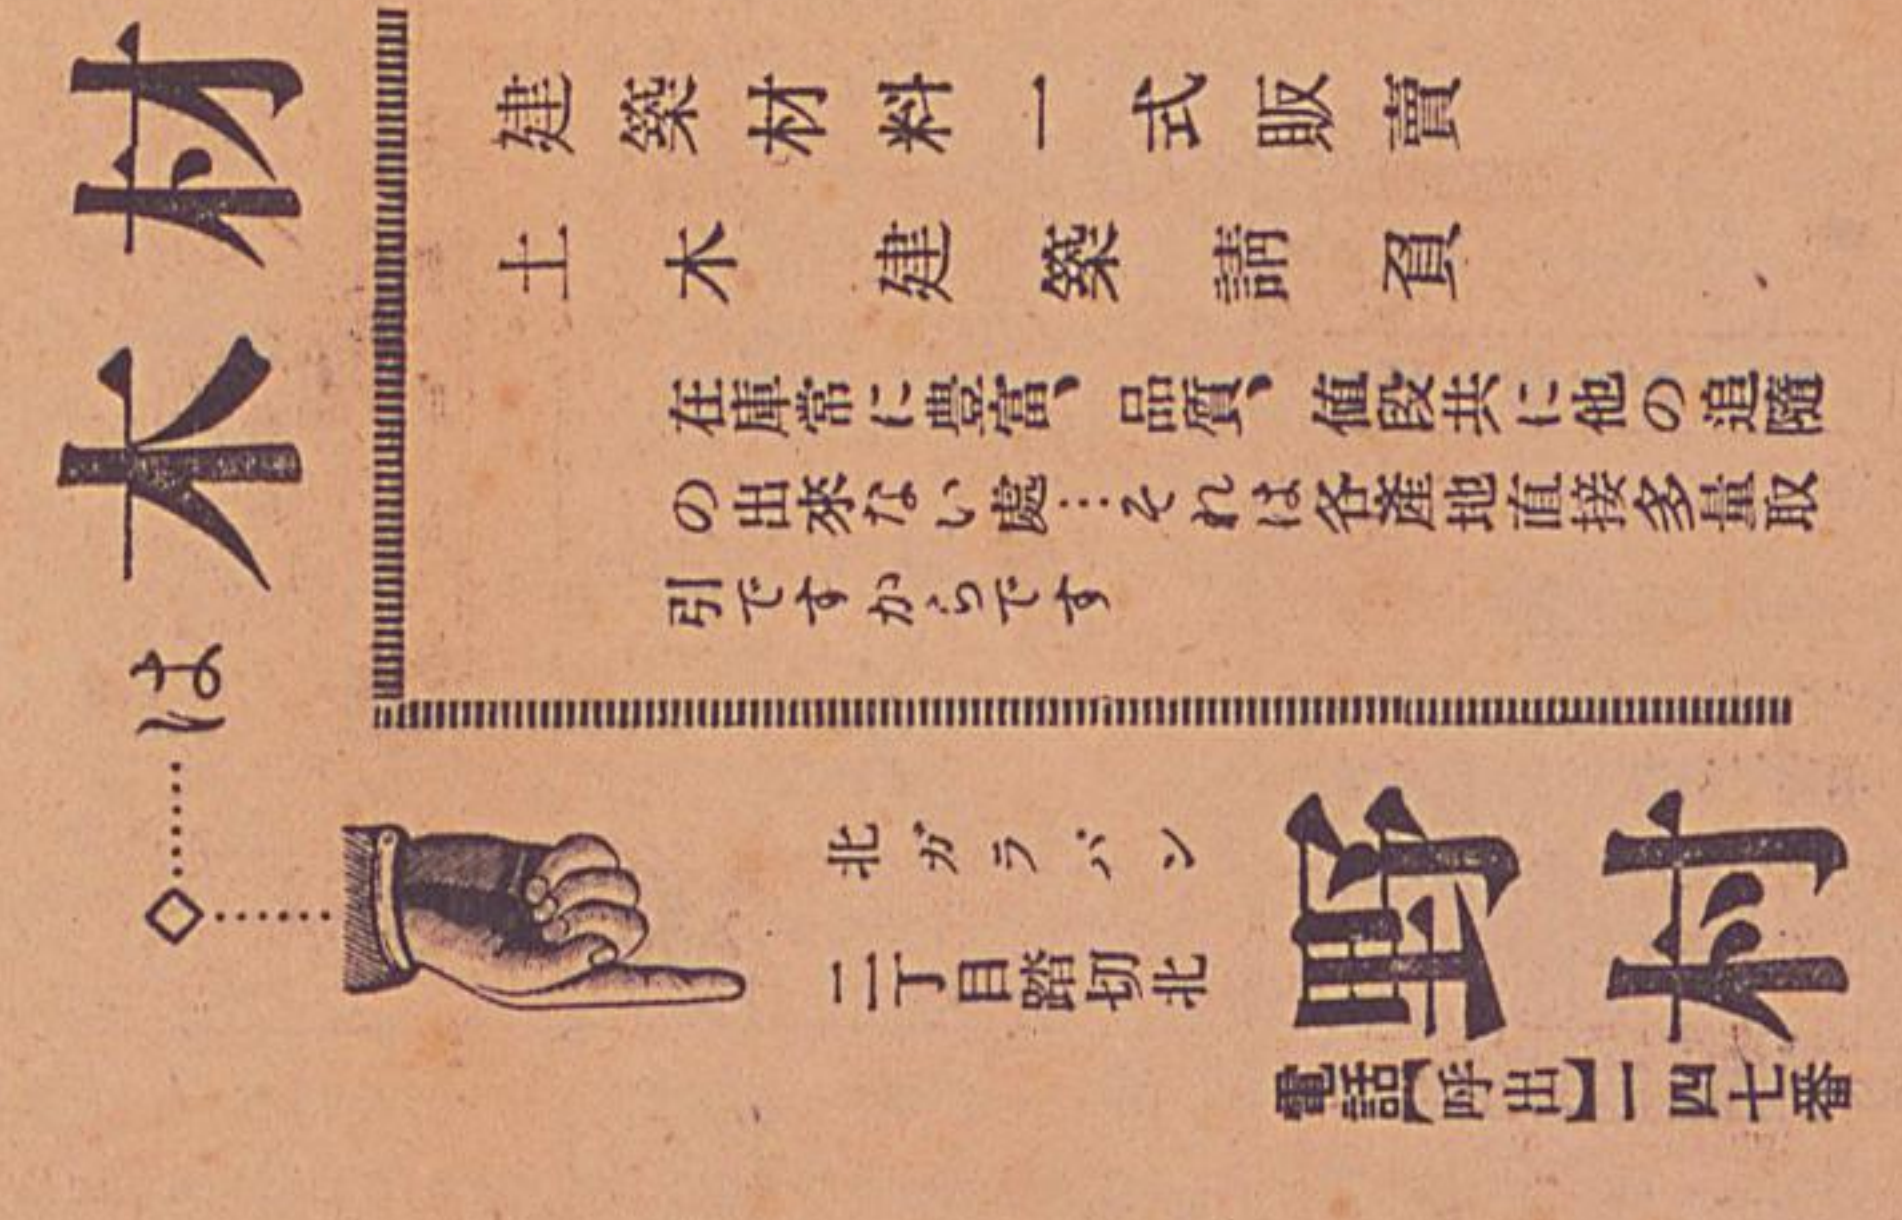 材木は
建築材料一式販賣
土木建築請負
在庫常に豊富、品質、値段共に他の追隨
の出來ない處…それは各産地直接多量取
引ですからです
北ガラパン
二丁目踏切北
野村
電話【呼出】一四七番